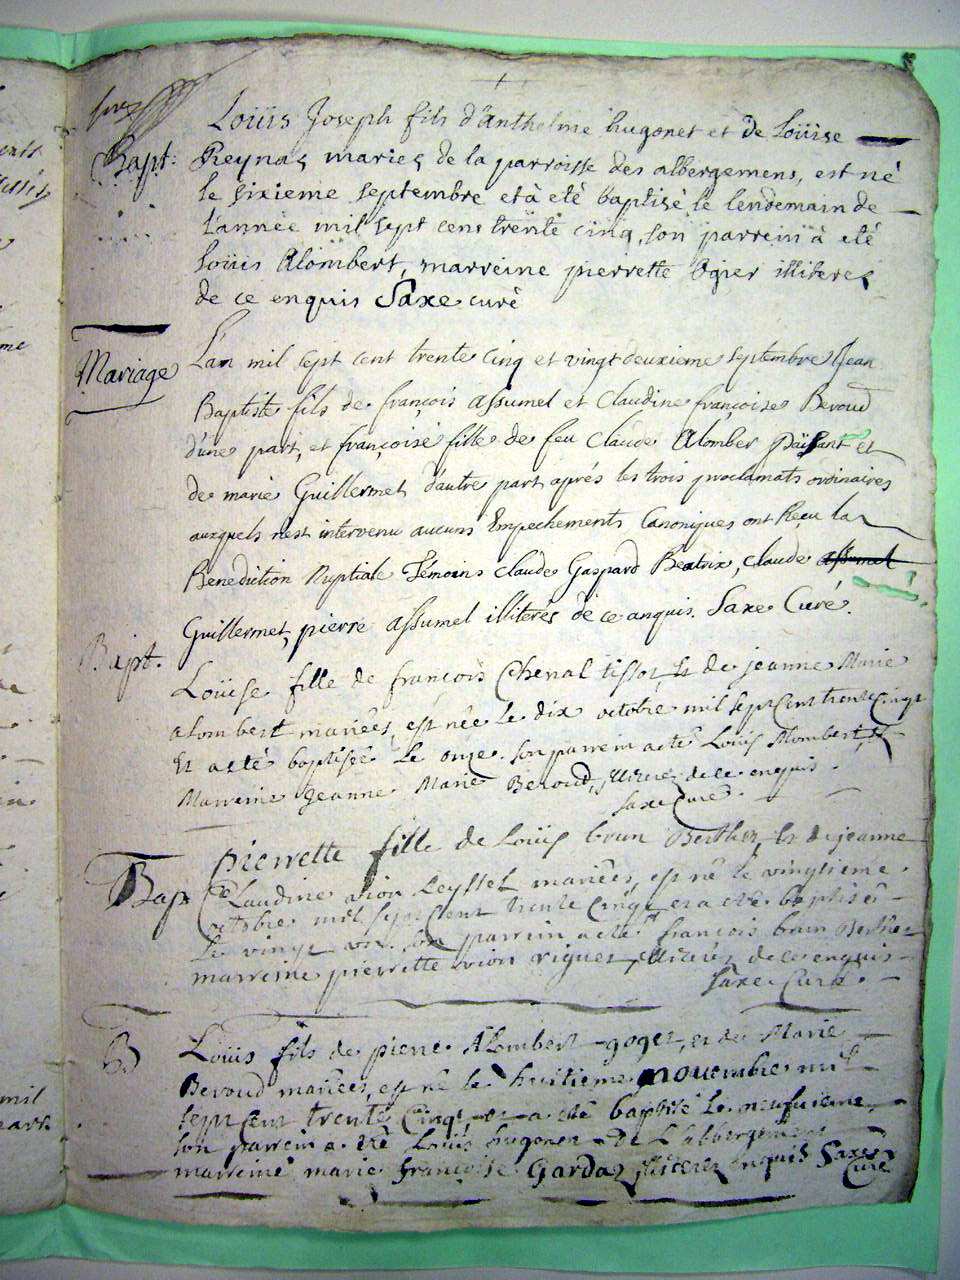 Loüis Joseph fils d'Anthelme hugonet et de Loüise
Bapt: Reynaz mariez de la parroisse des albergemens, est né
le sixieme septembre et à eté baptisé le lendemain de
L'année mil sept cens trente cinq, son parrein à eté
Loüis Alombert, marreine pierrette Ogier illiterez
de ce enquis Saxe curé
Mariage L'an mil sept cent trente cinq et vingt deuxieme septembre Jean
Baptiste fils de françois Assumel et Claudine françoise Beroud
d'une part, et françoise fille de feu Claude Alomber païsant et
de marie Guillermet d'autre part aprés les trois proclamats ordinaires
auxquels n'est intervenu aucuns Empechements Canoniques ont Receu la
Benediction Nuptiale Témoins Claude Gaspard Beatrix, Claude Assumel
Guillermet, pierre Assumel illiteres de ce anquis. Saxe Curé.
Bapt. Loüise fille de françois Chenal tissot, et de jeanne Marie
alombert mariées, est née le dix octobre mil sept cent trente cinq
et a eté baptisée le onze. son parrein a eté Loüis Alombert, et
Marreine jeanne Marie Beroud, illiterez de ce enquis
Saxe Curé.
Bap pierrette fille de Loüis brun Berthet, et de jeanne
Claudine vion Leyssel mariées, est né le vingtieme
octobre mil sept cent trente cinq et a eté baptisée
le vingt son parrein a eté françois brun Berthet
marreine pierrette vion illiterés de ce enquis
Saxe Curé.
B Loüis fils de pierre Alombert goget, et de Marie
Beroud mariées, est né le huitieme novembre mil
sept cent trente cinq, et a eté baptisé le neufvieme
son parrein a eté Loüis hugonet de L'abbergement
marreine marie françoise Gardaz, illiterez enquis Saxe
Curé